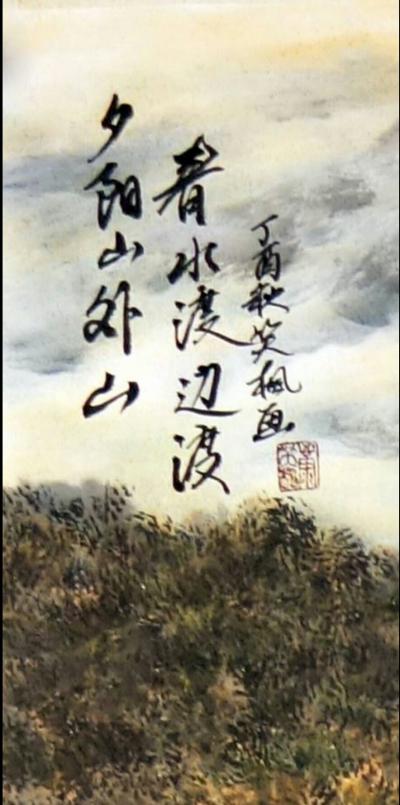 夕阳山外山
春水渡边渡
丁酉秋笑枫画